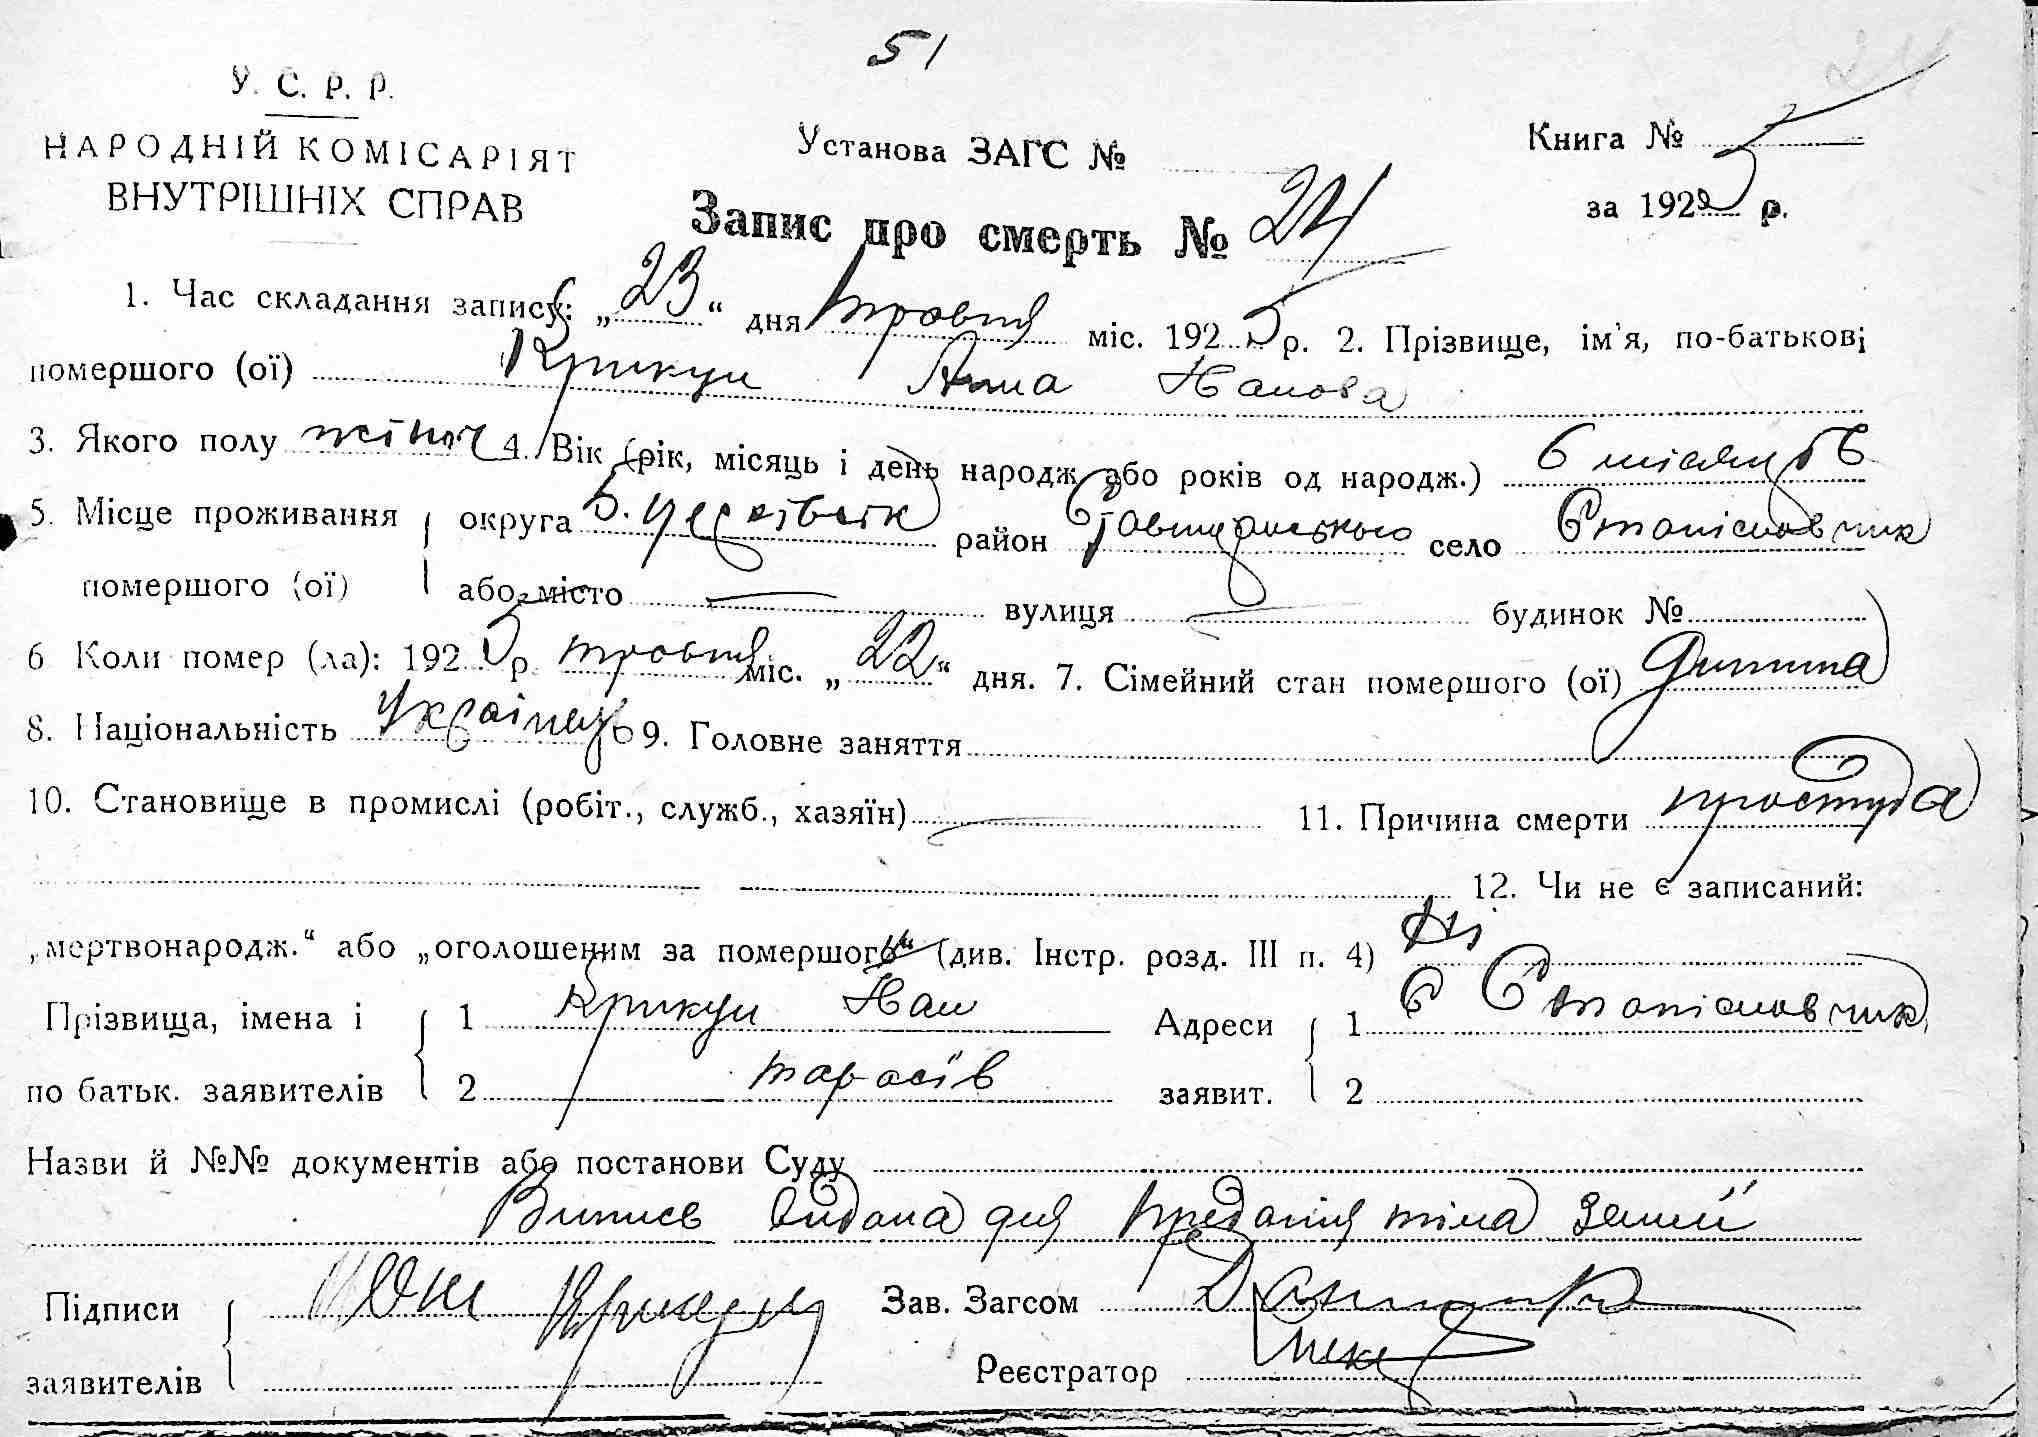 51
У. С. Р. Р.
НАРОДНІЙ КОМІСАРІЯТ
ВНУТРІШНІХ СПРАВ
Установа ЗАГС №
Книга №
за 1925 р.
Запис про смерть № 24
1. Час складання запису: „23“ дня травня міс. 1925 р. 2. Прізвище, ім'я, по-батькові
помершого (ої) Крикун Анна Іванова
3. Якого полу жіноч 4. Вік (рік, місяць і день народж. або років од народж.) 6 місяців
5. Місце проживання помершого (ої) округа Б. Церківськ район Ставищанського село Станіславчик
або місто — вулиця — будинок №
6 Коли помер (ла): 1925 р. травня міс. „22“ дня. 7. Сімейний стан помершого (ої) Дитина
8. Національність Українець 9. Головне заняття
10. Становище в промислі (робіт., служб., хазяїн) — 11. Причина смерти простуда
12. Чи не є записаний:
„мертвонародж.“ або „оголошеним за помершого“ (див. Інстр. розд. III п. 4) Ні
Прізвища, імена і по батьк. заявителів 1 Крикун Іван Адреси заявит. 1 С Станіславчик
2 Тарасів 2
Назви й №№ документів або постанови Суду
Випись видана для предания тіла землі
Підписи заявителів Іван Крикун Зав. Загсом
Реєстратор